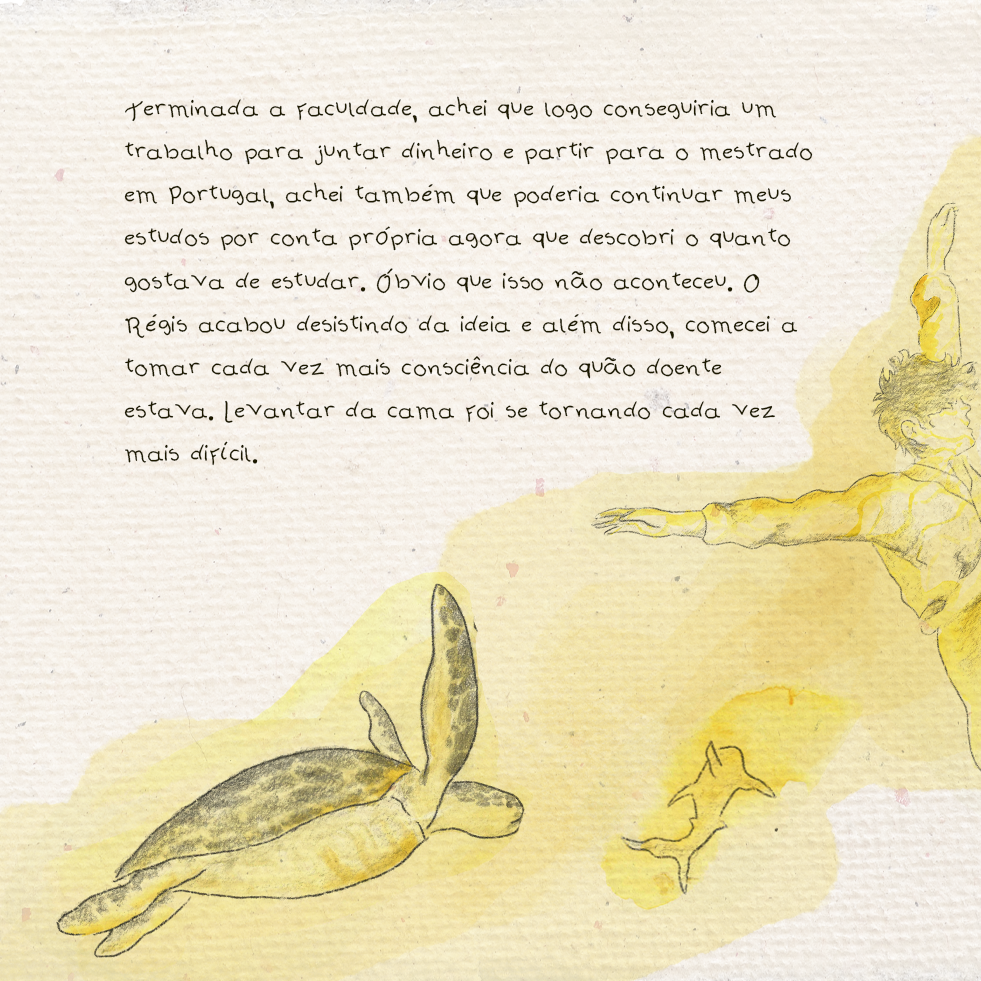 Terminada a faculdade, achei que logo conseguiria um
trabalho para juntar dinheiro e partir para o mestrado
em Portugal, achei também que poderia continuar meus
estudos por conta própria agora que descobri o quanto
gostava de estudar. Óbvio que isso não aconteceu. O
Régis acabou desistindo da ideia e além disso, comecei a
tomar cada vez mais consciência do quão doente
estava. Levantar da cama foi se tornando cada vez
mais difícil.